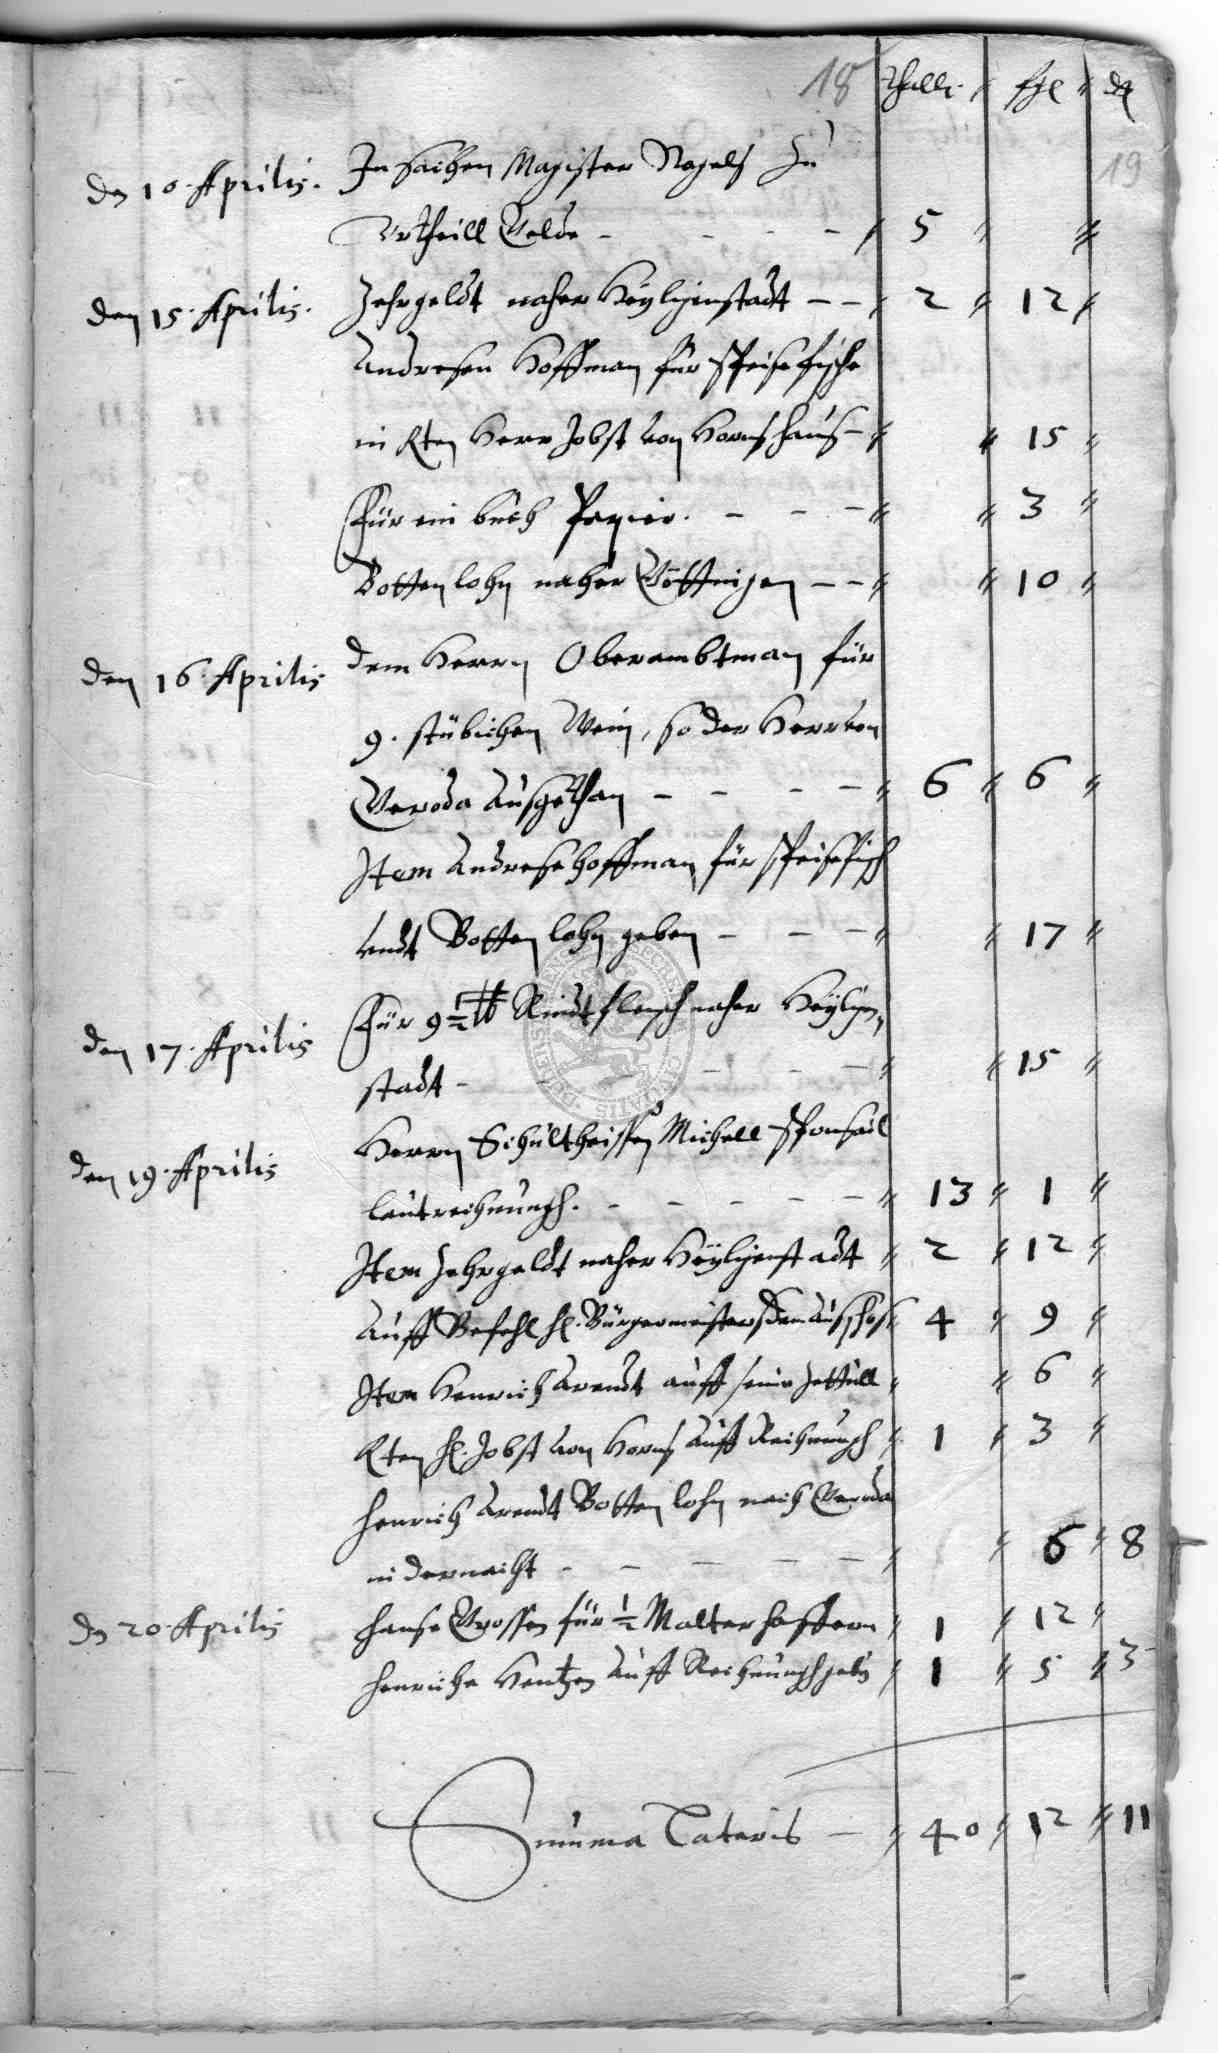 18 Thall. ßgl d
19
Den 10. Aprilis. In sachen Magister Nagels zu
Urtheill Gelde - - - - 5
Den 15. Aprilis. Zehrgeldt naher Heyligenstadt - - 2 12
Andresen Hoffman für speisefische
in Kten Herr Jobst von Hornshaus - 15
Für ein buch Papier. - - - 3
Bottenlohn naher Göttingen - - 10
Den 16. Aprilis dem Herrn Oberambtman für
9. stübichen Wein, so der Herr von
Geroda Ausgethan - - - - 6 6
Item Andrese Hoffman für speisefisch
undt Botten lohn geben - - - 17
Den 17. Aprilis Für 9½ ℔ Rindtfleisch naher Heylgn,
stadt - - - - - - 15
Den 19. Aprilis Herrn Schultheissen Michell Sponsail
laut rechnungh. - - - - - 13 1
Item Zehrgeldt naher Heyligenstadt 2 12
Auff Befehl H. Bürgermeisters dem Ausschos 4 9
Item Henrich Arendt auff seine Zettull 6
Kten H. Jobst von Horns Auff Rechnungh 1 3
Henrich Arendt Botten lohn nach Geroda
in der nacht - - - - - 6 8
Den 20. Aprilis Hanse Grossen für ½ Malter haffern 1 12
Henriche Hentzen Auff Rechnungh geben 1 5 3
Summa Lateris - 40 12 11